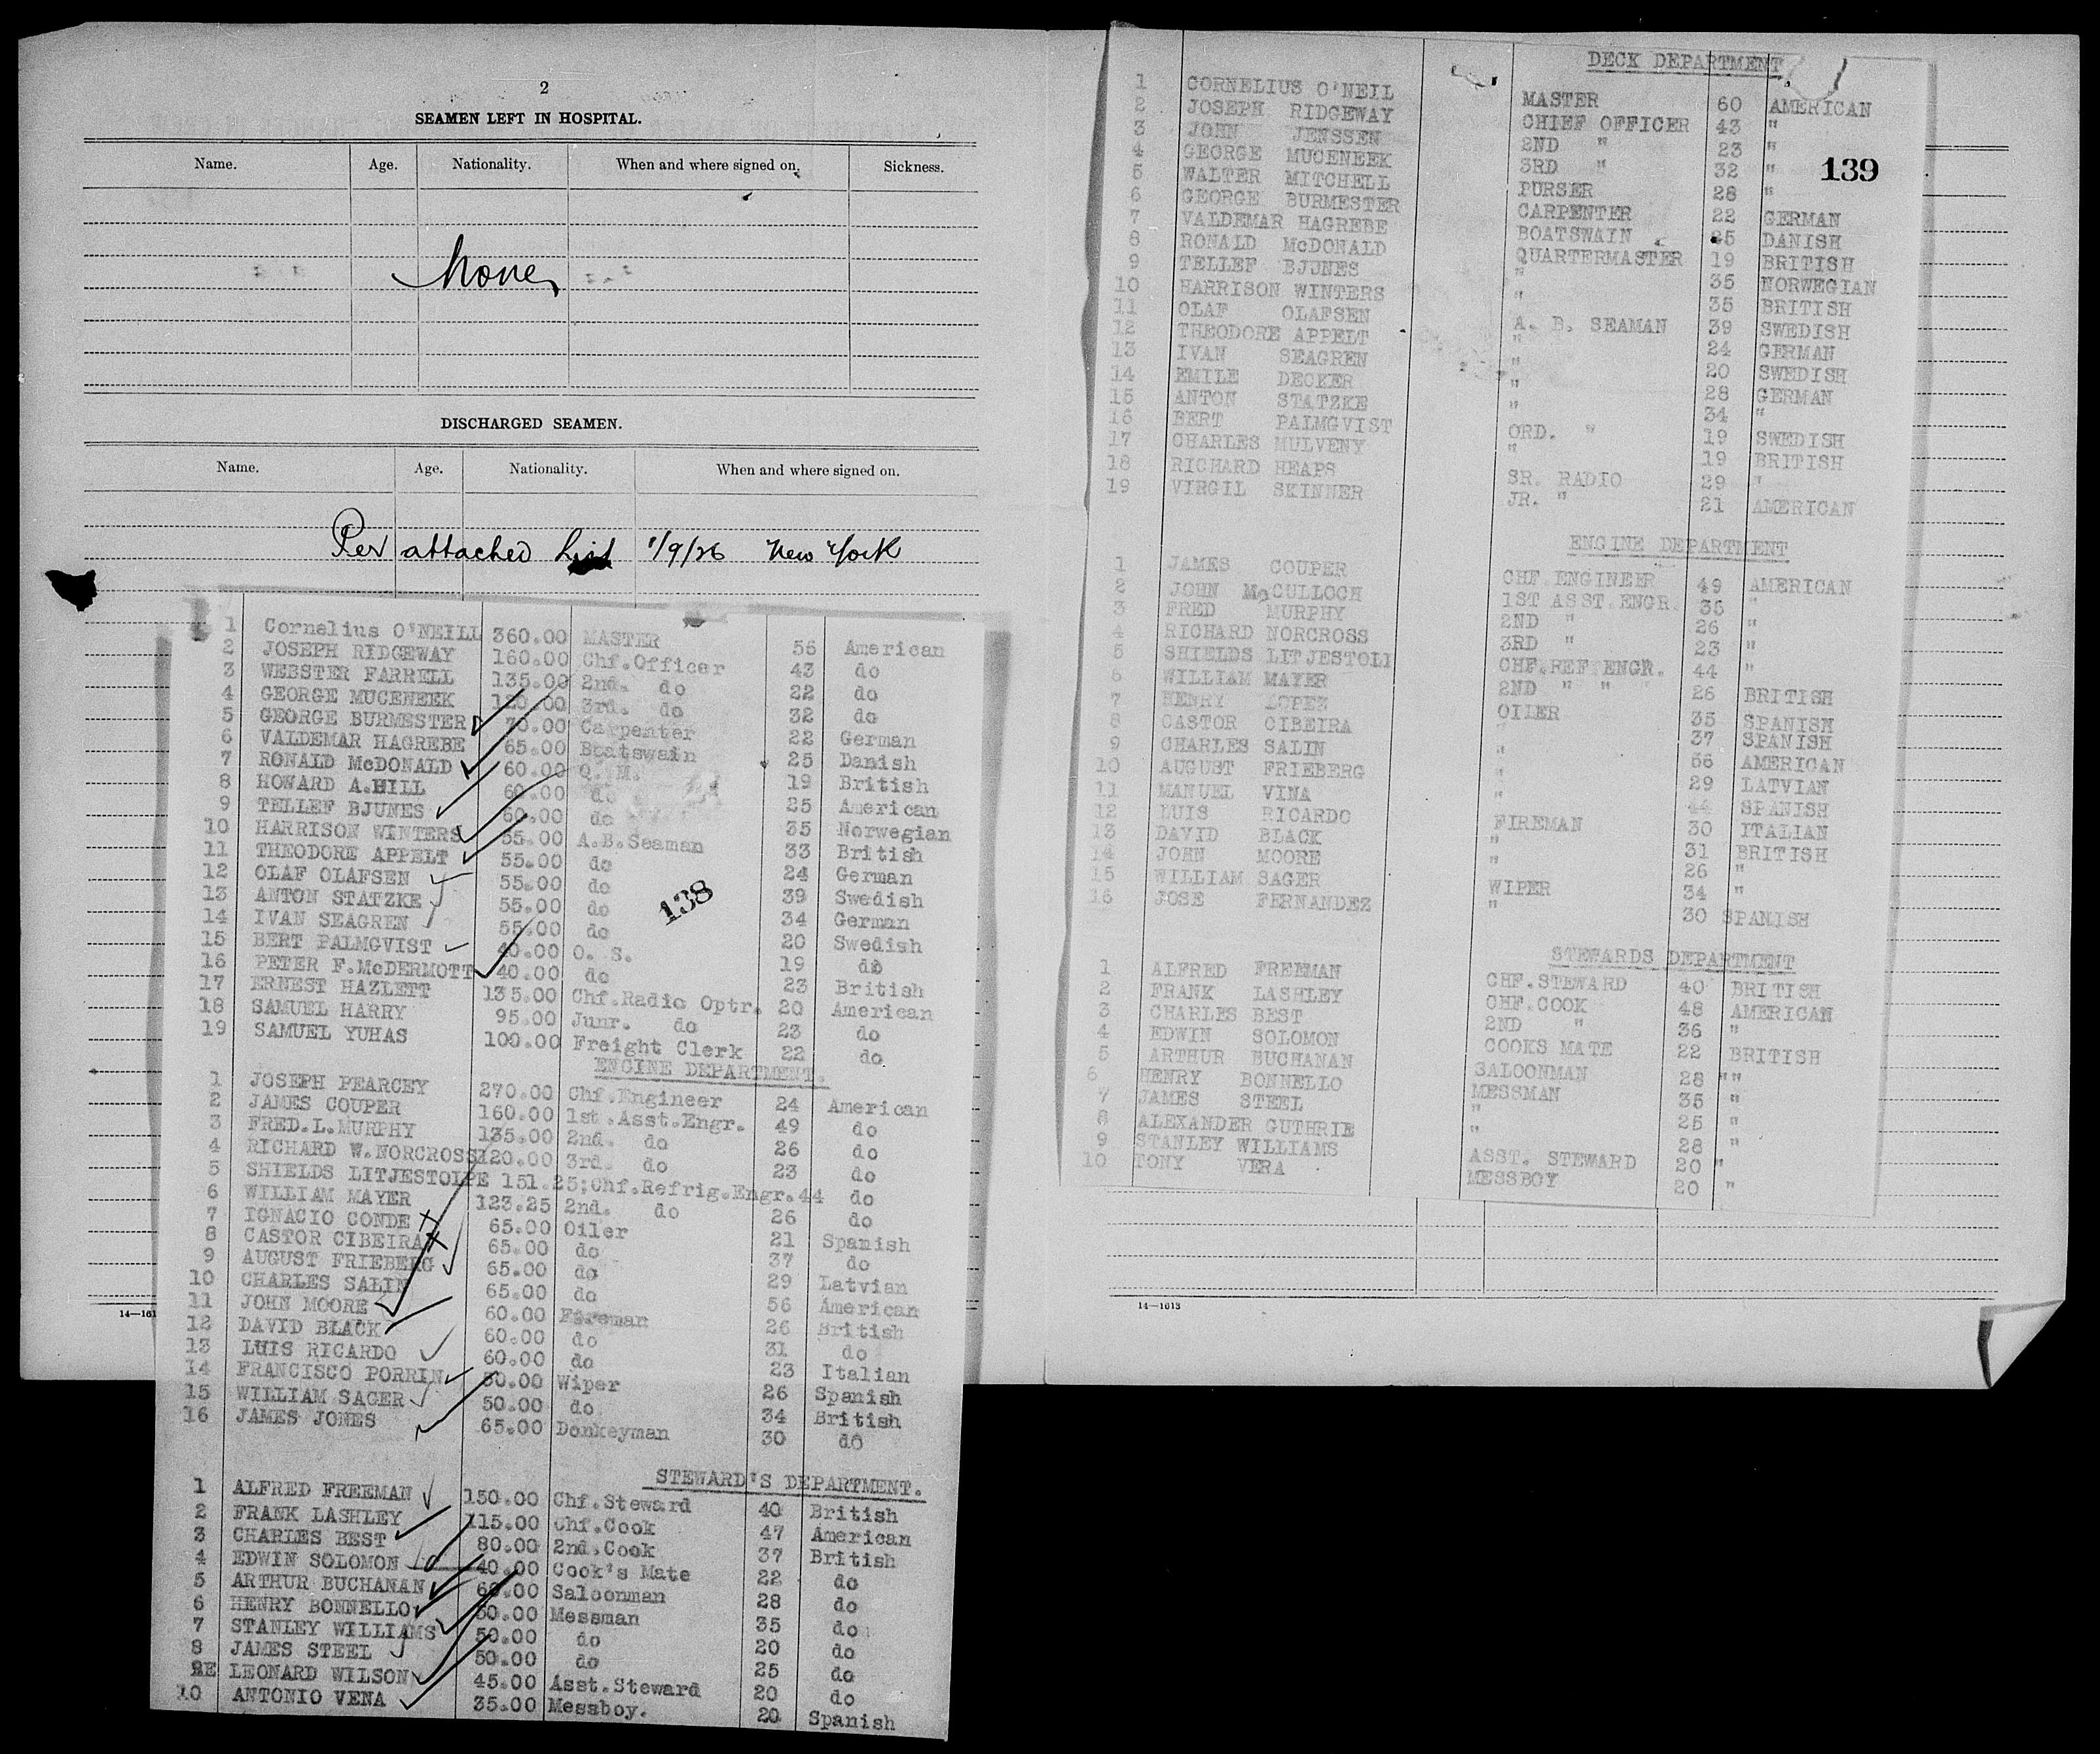 2
SEAMEN LEFT IN HOSPITAL.
Name. Age. Nationality. When and where signed on. Sickness.
None
DISCHARGED SEAMEN.
Name. Age. Nationality. When and where signed on.
Per attached List 1/9/26 New York
1 Cornelius O'NEILL 360.00 MASTER 56 American
2 JOSEPH RIDGEWAY 160.00 Chf.Officer 43 do
3 WEBSTER FARRELL 135.00 2nd. do 22 do
4 GEORGE MUCENEEK 120.00 3rd. do 32 do
5 GEORGE BURMESTER 70.00 Carpenter 22 German
6 VALDEMAR HAGREBE 65.00 Boatswain 25 Danish
7 RONALD McDONALD 60.00 Q. M. 19 British
8 HOWARD A.HILL 60.00 do 25 American
9 TELLEF BJUNES 60.00 do 35 Norwegian
10 HARRISON WINTERS 55.00 A.B.Seaman 33 British
11 THEODORE APPELT 55.00 do 24 German
12 OLAF OLAFSEN 55.00 do 39 Swedish
13 ANTON STATZKE 55.00 do 34 German
14 IVAN SEAGREN 55.00 do 20 Swedish
15 BERT PALMGVIST 40.00 O. S. 19 do
16 PETER F.McDERMOTT 40.00 do 23 British
17 ERNEST HAZLETT 135.00 Chf.Radio Optr. 20 American
18 SAMUEL HARRY 95.00 Junr. do 23 do
19 SAMUEL YUHAS 100.00 Freight Clerk 22 do
138
ENGINE DEPARTMENT.
1 JOSEPH PEARCEY 270.00 Chf.Engineer 24 American
2 JAMES COUPER 160.00 1st.Asst.Engr. 49 do
3 FRED.L.MURPHY 135.00 2nd. do 26 do
4 RICHARD W.NORCROSS 120.00 3rd. do 23 do
5 SHIELDS LITJESTOLPE 151.25;Chf.Refrig.Engr.44 do
6 WILLIAM MAYER 123.25 2nd. do 26 do
7 IGNACIO CONDE 65.00 Oiler 21 Spanish
8 CASTOR CIBEIRA 65.00 do 37 do
9 AUGUST FRIEBERG 65.00 do 29 Latvian
10 CHARLES SALIN 65.00 do 56 American
11 JOHN MOORE 60.00 Fireman 26 British
12 DAVID BLACK 60.00 do 31 do
13 LUIS RICARDO 60.00 do 23 Italian
14 FRANCISCO PORRIN 50.00 Wiper 26 Spanish
15 WILLIAM SAGER 50.00 do 34 British
16 JAMES JONES 65.00 Donkeyman 30 do
STEWARD'S DEPARTMENT.
1 ALFRED FREEMAN 150.00 Chf.Steward 40 British
2 FRANK LASHLEY 115.00 Chf.Cook 47 American
3 CHARLES BEST 80.00 2nd.Cook 37 British
4 EDWIN SOLOMON 40.00 Cook's Mate 22 do
5 ARTHUR BUCHANAN 60.00 Saloonman 28 do
6 HENRY BONNELLO 50.00 Messman 35 do
7 STANLEY WILLIAMS 50.00 do 20 do
8 JAMES STEEL 50.00 do 25 do
LEONARD WILSON 45.00 Asst.Steward 20 do
10 ANTONIO VENA 35.00 Messboy. 20 Spanish
14—161
DECK DEPARTMENT
1 CORNELIUS O'NEIL MASTER 60 AMERICAN
2 JOSEPH RIDGEWAY CHIEF OFFICER 43 "
3 JOHN JENSSEN 2ND " 23 "
4 GEORGE MUCENEEK 3RD " 32 "
5 WALTER MITCHELL PURSER 28 "
6 GEORGE BURMESTER CARPENTER 22 GERMAN
7 VALDEMAR HAGREBE BOATSWAIN 25 DANISH
8 RONALD McDONALD QUARTERMASTER 19 BRITISH
9 TELLEF BJUNES " 35 NORWEGIAN
10 HARRISON WINTERS " 35 BRITISH
11 OLAF OLAFSEN A. B. SEAMAN 39 SWEDISH
12 THEODORE APPELT " 24 GERMAN
13 IVAN SEAGREN " 20 SWEDISH
14 EMILE DECKER " 28 GERMAN
15 ANTON STATZKE " 34 "
16 BERT PALMGVIST ORD. " 19 SWEDISH
17 CHARLES MULVENY " 19 BRITISH
18 RICHARD HEAPS SR. RADIO 29 "
19 VIRGIL SKINNER JR. " 21 AMERICAN
139
ENGINE DEPARTMENT
1 JAMES COUPER CHF.ENGINEER 49 AMERICAN
2 JOHN McCULLOCH 1ST ASST.ENGR. 36 "
3 FRED MURPHY 2ND " 26 "
4 RICHARD NORCROSS 3RD " 23 "
5 SHIELDS LITJESTOLP CHF.REF ENGR. 44 "
6 WILLIAM MAYER 2ND " " 26 BRITISH
7 HENRY LOPEZ OILER 35 SPANISH
8 CASTOR CIBEIRA " 37 SPANISH
9 CHARLES SALIN " 56 AMERICAN
10 AUGUST FRIEBERG " 29 LATVIAN
11 MANUEL VINA " 44 SPANISH
12 LUIS RICARDO FIREMAN 30 ITALIAN
13 DAVID BLACK " 31 BRITISH
14 JOHN MOORE " 26 "
15 WILLIAM SAGER WIPER 34 "
16 JOSE FERNANDEZ " 30 SPANISH
STEWARDS DEPARTMENT
1 ALFRED FREEMAN CHF.STEWARD 40 BRITISH
2 FRANK LASHLEY CHF.COOK 48 AMERICAN
3 CHARLES BEST 2ND " 36 "
4 EDWIN SOLOMON COOKS MATE 22 BRITISH
5 ARTHUR BUCHANAN SALOONMAN 28 ""
6 HENRY BONNELLO MESSMAN 35 "
7 JAMES STEEL " 25 "
8 ALEXANDER GUTHRIE " 28 "
9 STANLEY WILLIAMS ASST. STEWARD 20 "
10 TONY VERA MESSBOY 20 "
14—1613